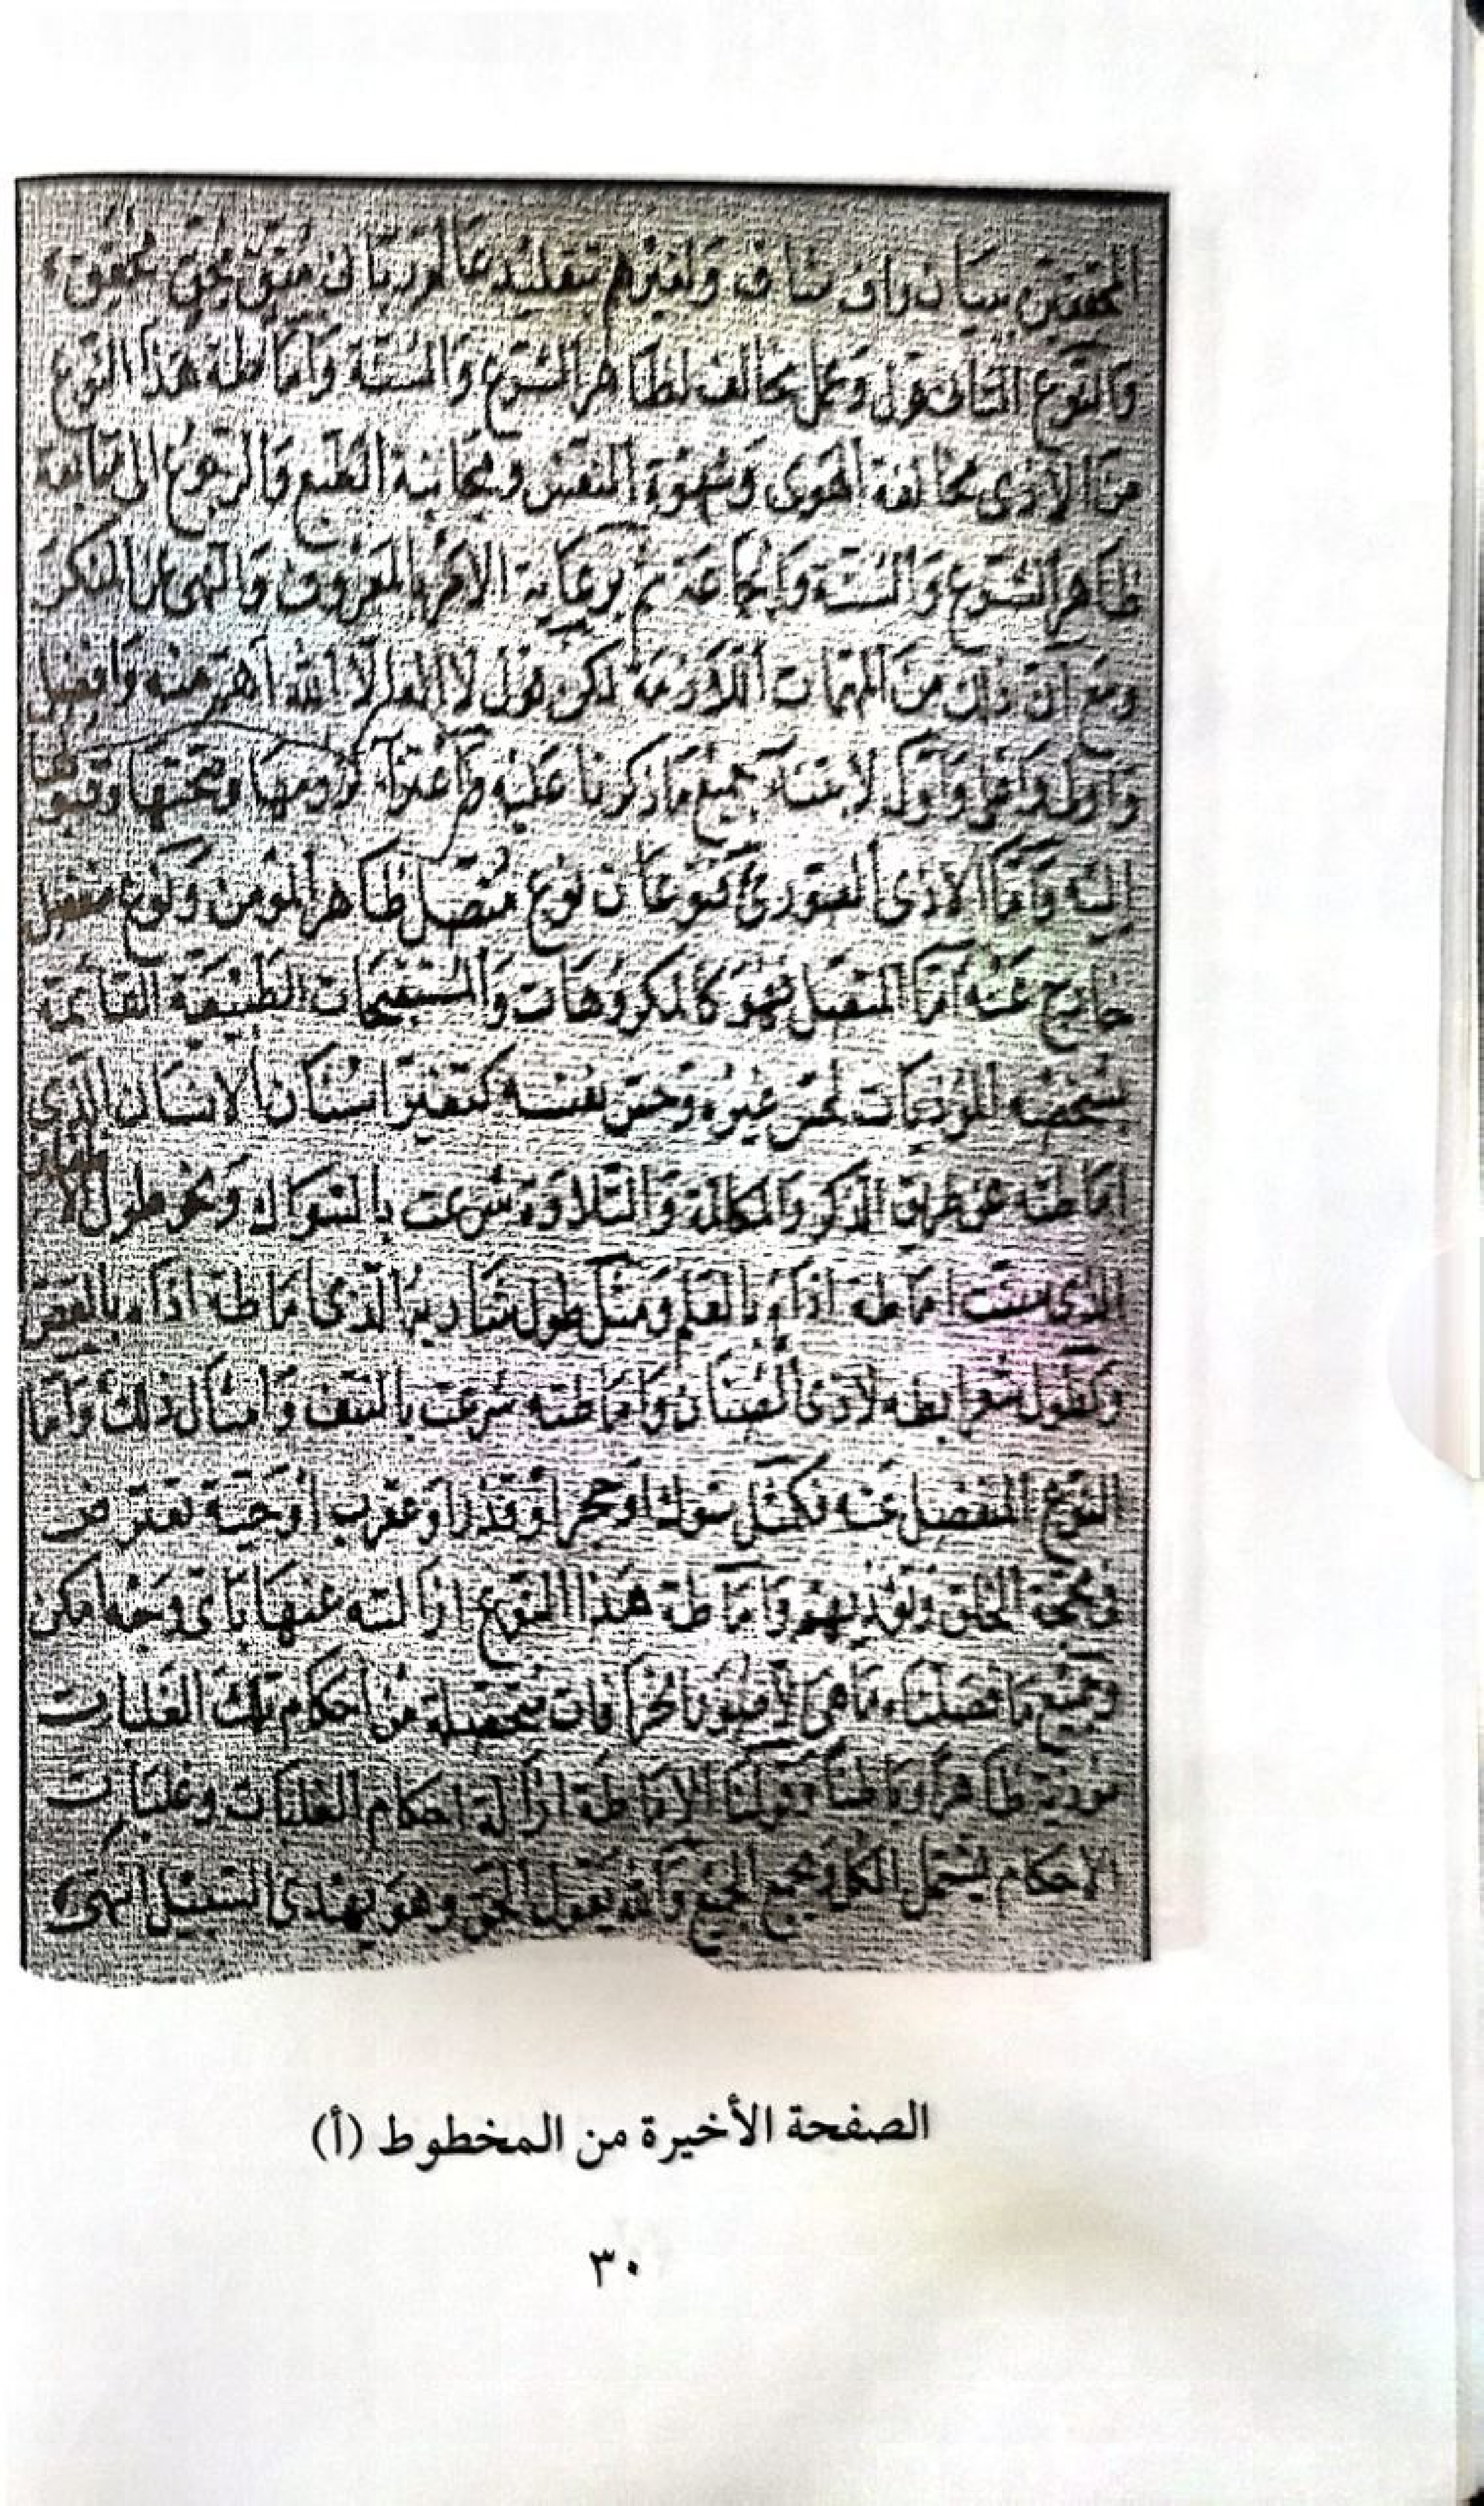 المحققين ببيان واف شاف ولغيرهم بتقليد عالم رباني متق محق محقق
والنوع الثاني قول وعمل يخالف لظاهر الشرع والسنة وإماطة هذا النوع
من الأذى مخالفة الهوى وشهوة النفس ومجانبة الطبع والرجوع إلى متابعة
ظاهر الشرع والسنة والجماعة ثم برعاية الأمر بالمعروف والنهي عن المنكر
ومع أن ذلك من المهمات اللازمة لكن قول لا إله إلا الله أهم منه وأفضل
جميع ما ذكرنا عليه لزومها وصحتها وقبولها
إليه وأما الأذى الصوري فنوعان نوع متصل ظاهر المؤمن ونوع منفصل
خارج عنه أما المتصل فهو كالمكروهات والمستقبحات الطبيعية القائمة
بشخصه المؤذيات لحس غيره وحس نفسه كتغير أسنان الإنسان الذي
إماطته عن طريق الذكر والمكالمة والتلاوة شرعت بالسواك ونحو طول الأظفار
الذي إماطة أذاه بالقلم ومثل طول شاربه الذي إماطة أذاه بالقص
وكطول شعر إبطه لأذى الصنان وإماطته شرعت بالنتف وأمثال ذلك وأما
النوع المنفصل عنه فكمثل شوك أو حجر أو قذر أو عقرب أو حية تعترض
الخلق وتؤذيهم وإماطة هذا النوع إزالته عنها بأي وجه أمكن
وجميع ما فصلناه من أحكام تلك الغلبات
ظاهرا وباطنا وقولنا الإماطة إزالة أحكام الغلبات وغلبات
الأحكام ليشمل الكل ويجمع الجميع والله يقول الحق وهو يهدي السبيل انتهى
الصفحة الأخيرة من المخطوط (أ)
٣٠